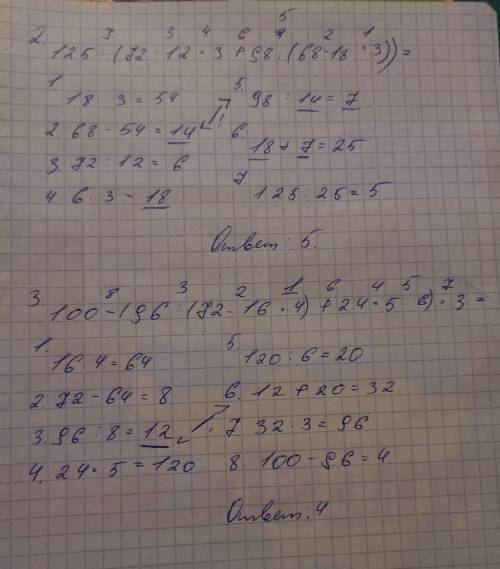 5
7 3 4 6 2 1
2. 125 : (72 : 12 · 3 + 98 : (68 - 18 · 3)) =
1
18 · 3 = 54
5. 98 : 14 = 7
2. 68 - 54 = 14
6. 18 + 7 = 25
3. 72 : 12 = 6
7.
4. 6 · 3 - 18
125 : 25 = 5
Ответ: 5.
8 3 2 1 6 4 5 7
3. 100 - (96 : (72 - 16 · 4) + 24 · 5 : 6) · 3 =
1.
16 · 4 = 64
5
120 : 6 = 20
2. 72 - 64 = 8
6. 12 + 20 = 32
3. 96 : 8 = 12
7. 32 · 3 = 96
4. 24 · 5 = 120
8. 100 - 96 = 4.
Ответ: 4